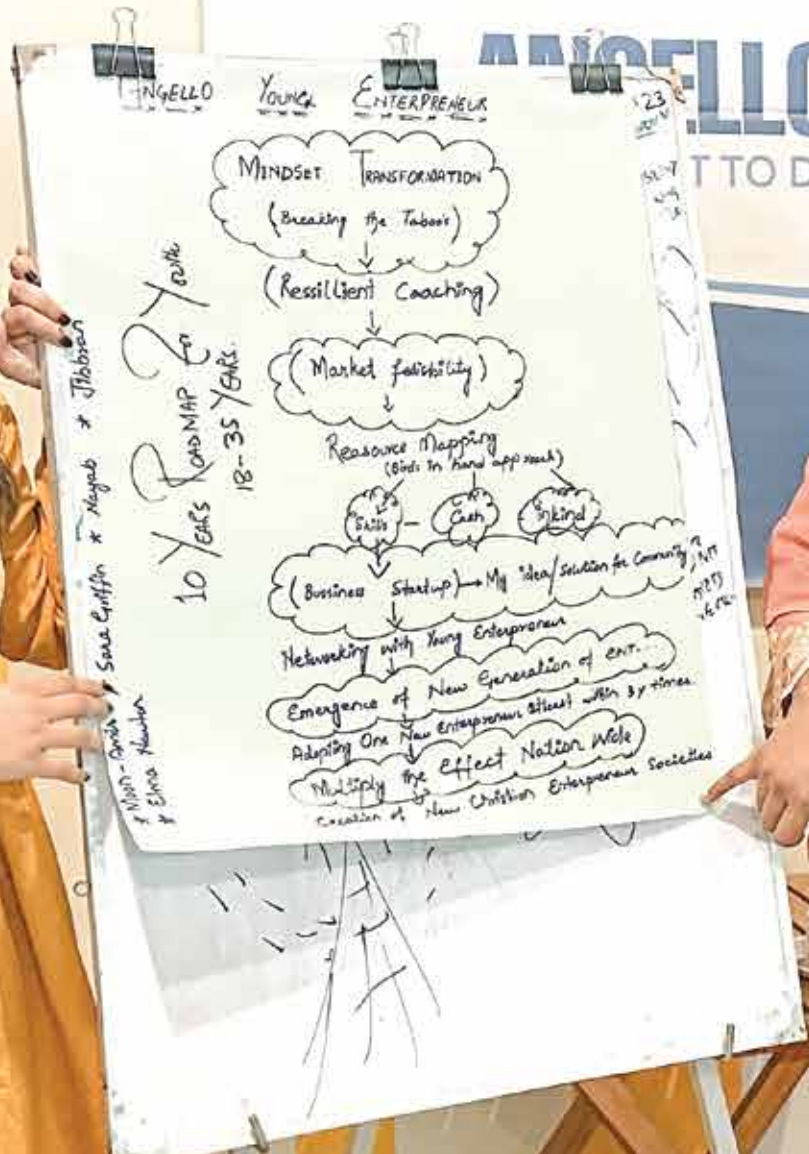 ANGELLO
T TO D
ANGELLO YOUNG ENTERPRENEUR
MINDSET TRANSFORMATION
(Breaking the Taboos)
(Ressillient Coaching)
(Market fesibility)
Reasource Mapping
(Birds in hand approach)
Skills - Cash inkind
(Bussiness Startup) → My idea/solution for Community
Networking with Young Enterpreneur
Emergence of New Generation of ENT...
Adopting One New Enterpreneur atleast within 3 y times
Multiply the Effect Nation Wide
Creation of New Christian Enterpreneur Societies
10 YEARS ROADMAP For Youth
18-35 YEARS.
* Sara Griffin * Nayab * Jibbran
* Elma Newton
23